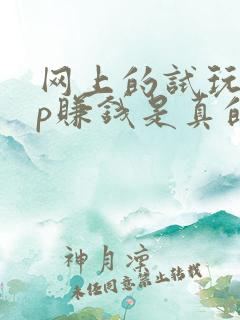 网上的试玩
p赚钱是真的
神月凉
未经同意禁止转载